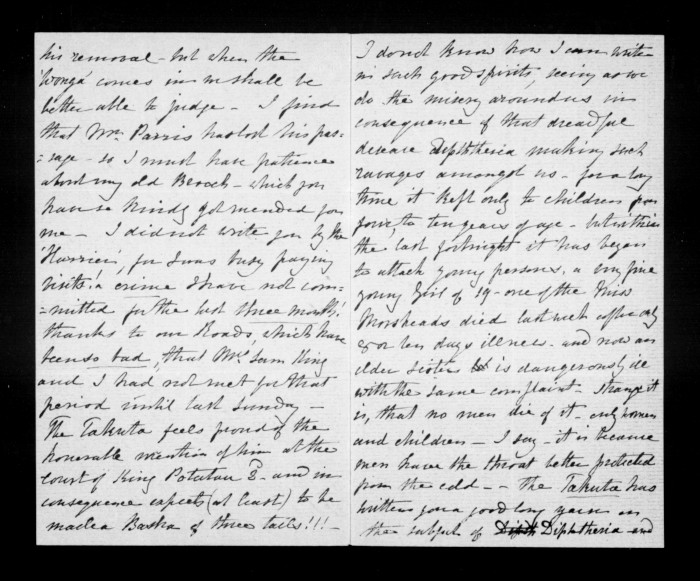 his removal - but when the
'Wonga' comes in we shall be
better able to judge - I find
that Mr. Parris has lost his pas=
=sage - so I must have patience
about my old Broach - which you
have so kindly got mended for
me - I did not write you by the
'Harrier', for I was busy paying
visits! a crime I have not com=
=mitted for the last three months!
thanks to our Roads, which have
been so bad, that Mrs. Sam King
and I had not met for that
period until last Sunday -
The Takuta feels proud of the
honorable mention of him at the
Court of King Potatau 2. and in
consequence expects (at least) to be
made a Basha of three tails!!! -
I do not know how I can write
in such good spirits, seeing as we
do the misery around us in
consequence of that dreadful
disease Diphtheria making such
ravages amongst us - for a long
time it kept only to children from
four, to ten years of age - but within
the last fortnight it has began
to attack young persons, a very fine
young Girl of 19 - one of the Miss
Morsheads died last week after only
8 or ten days illness - and now an
elder sister is dangerously ill
with the same complaint - strange it
is, that no men die of it, only women
and children - I say - it is because
men have the throat better protected
from the cold - - the Takuta has
written you a good long yarn on
the subject of Diphtheria - and